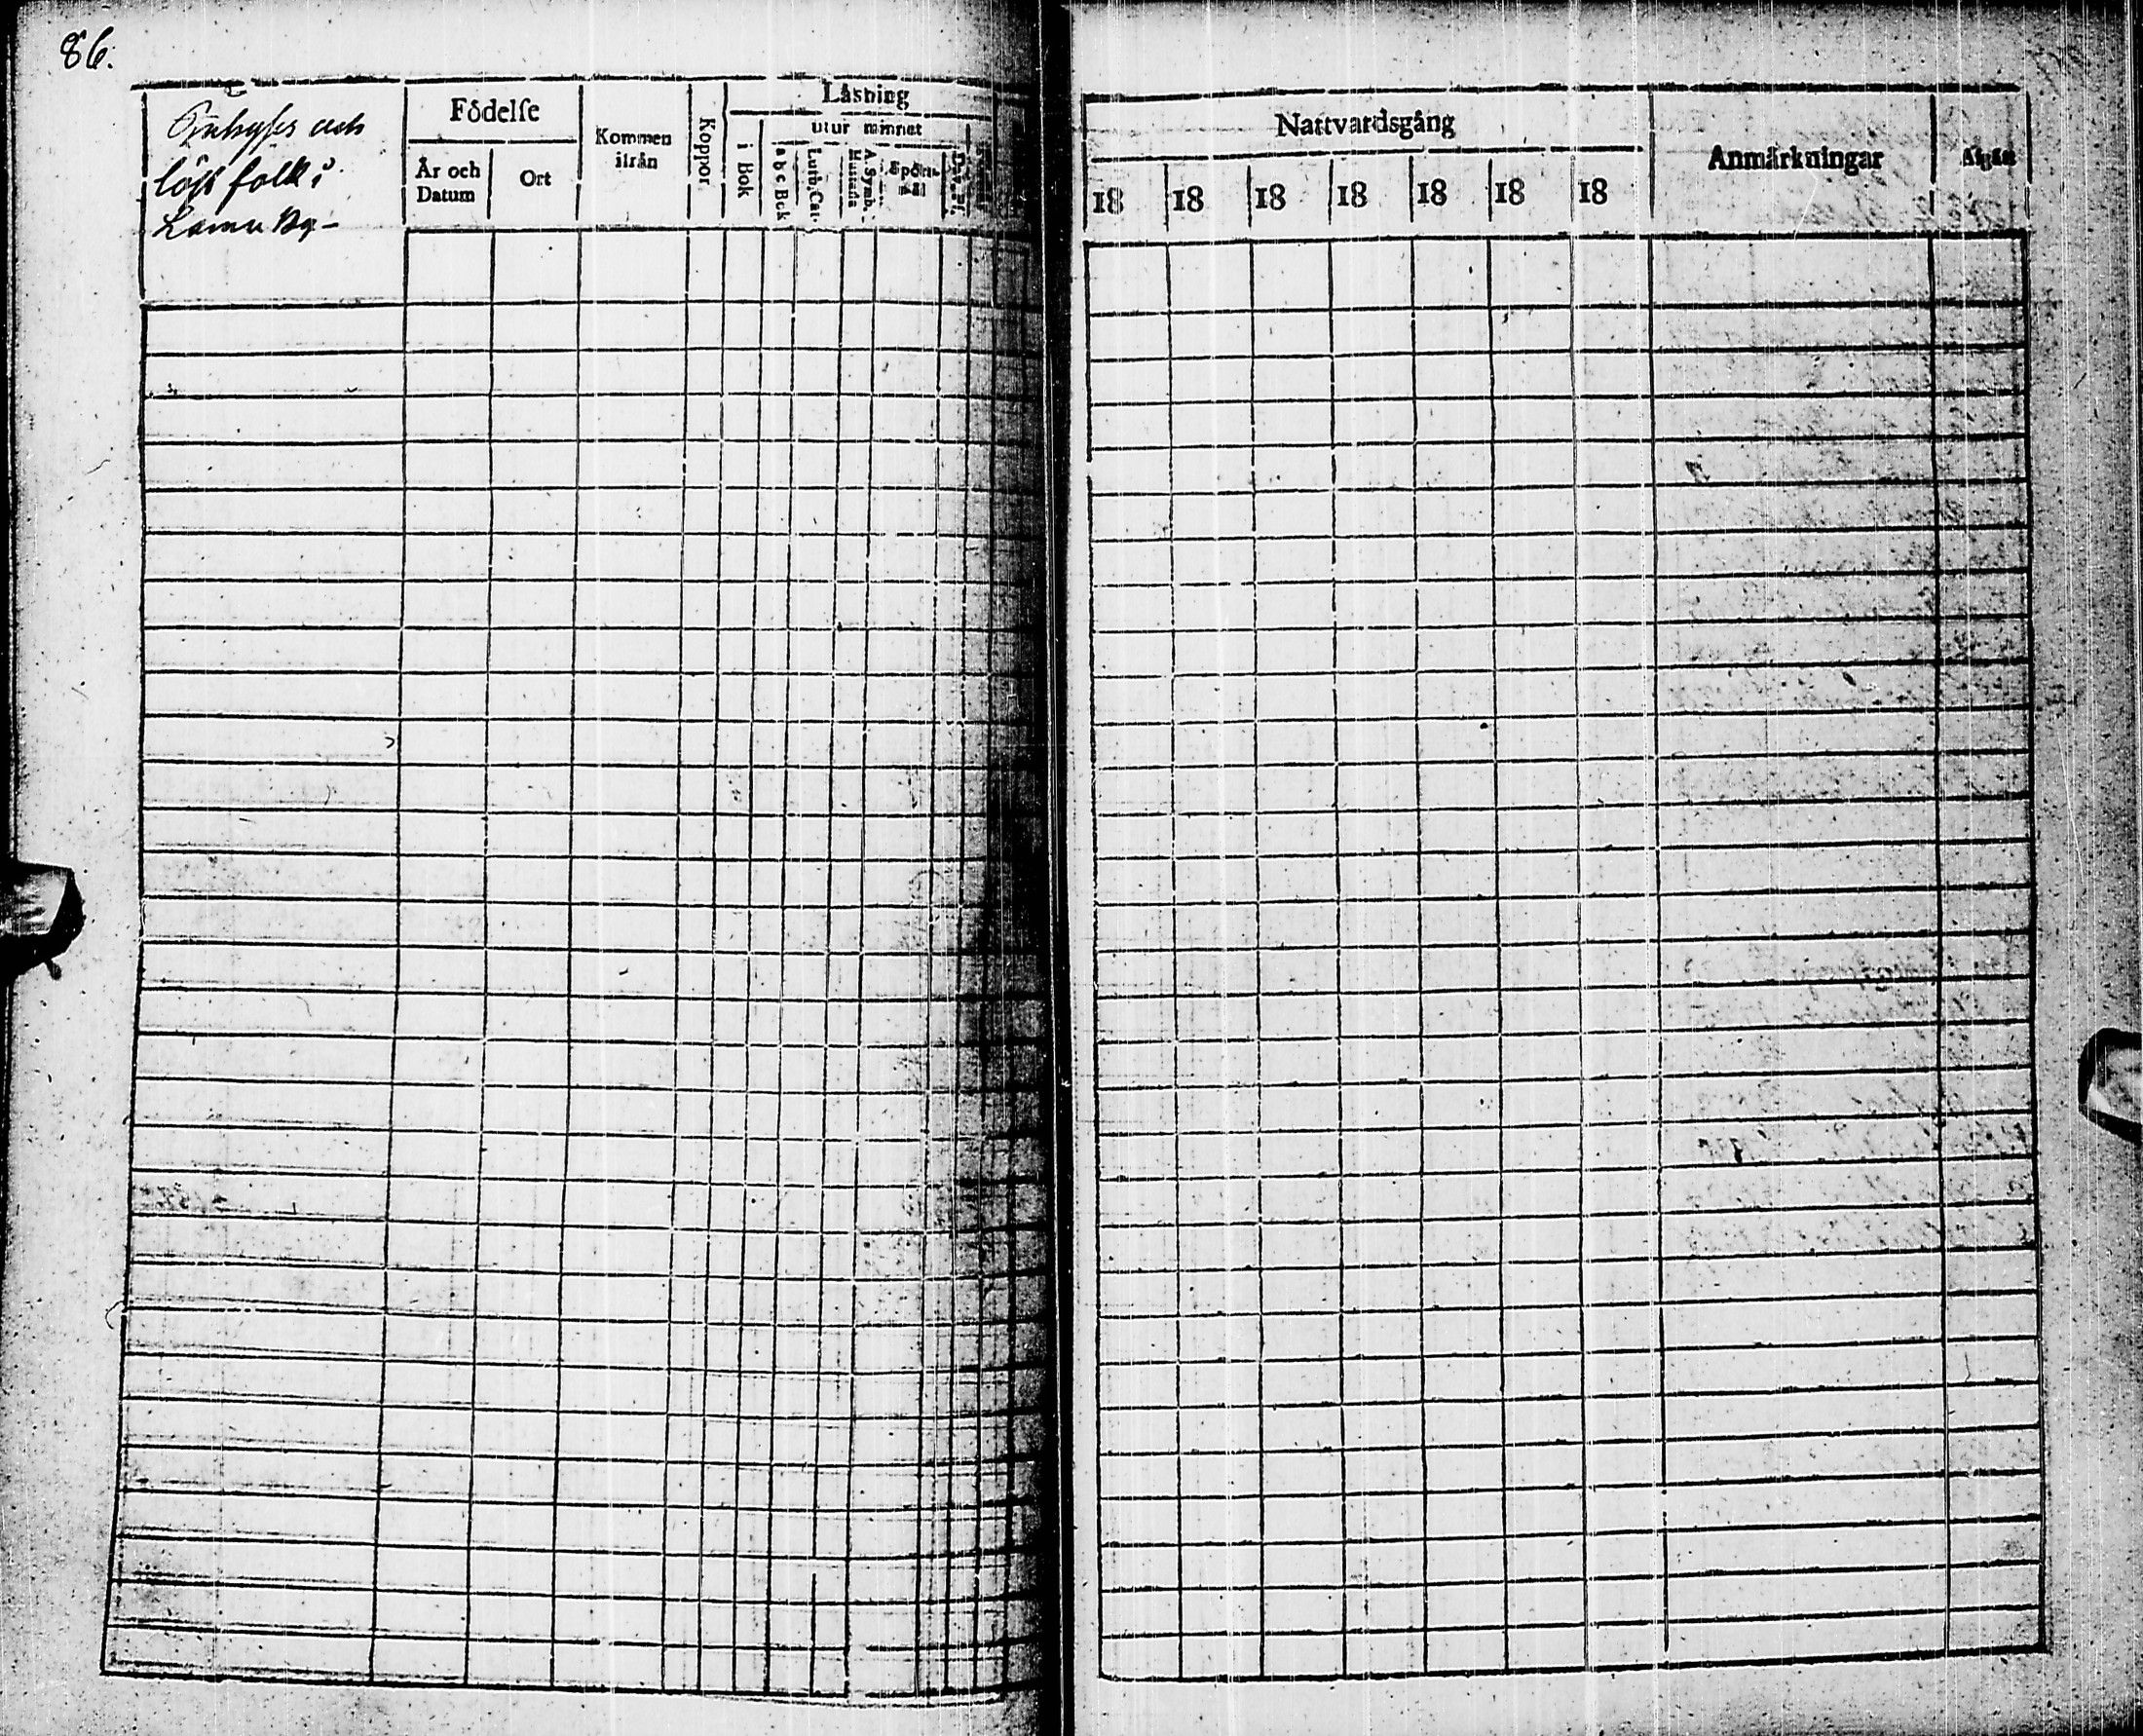 86.
Inhyses och
löst folk i
Lamu By -
Födelse
År och
Datum
Ort
Kommen
ifrån
Koppor
Låsning
i Bok
utur minnet
a b c Bok
Luth. Cat.
A. Symb.
Hustafla
Spörs-
mål
Nattvardsgång
18 18 18 18 18 18 18
Anmärkningar
Afgått